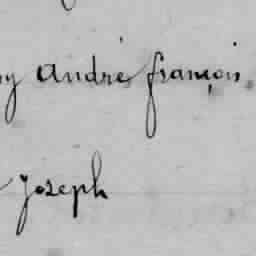 André françois
Joseph